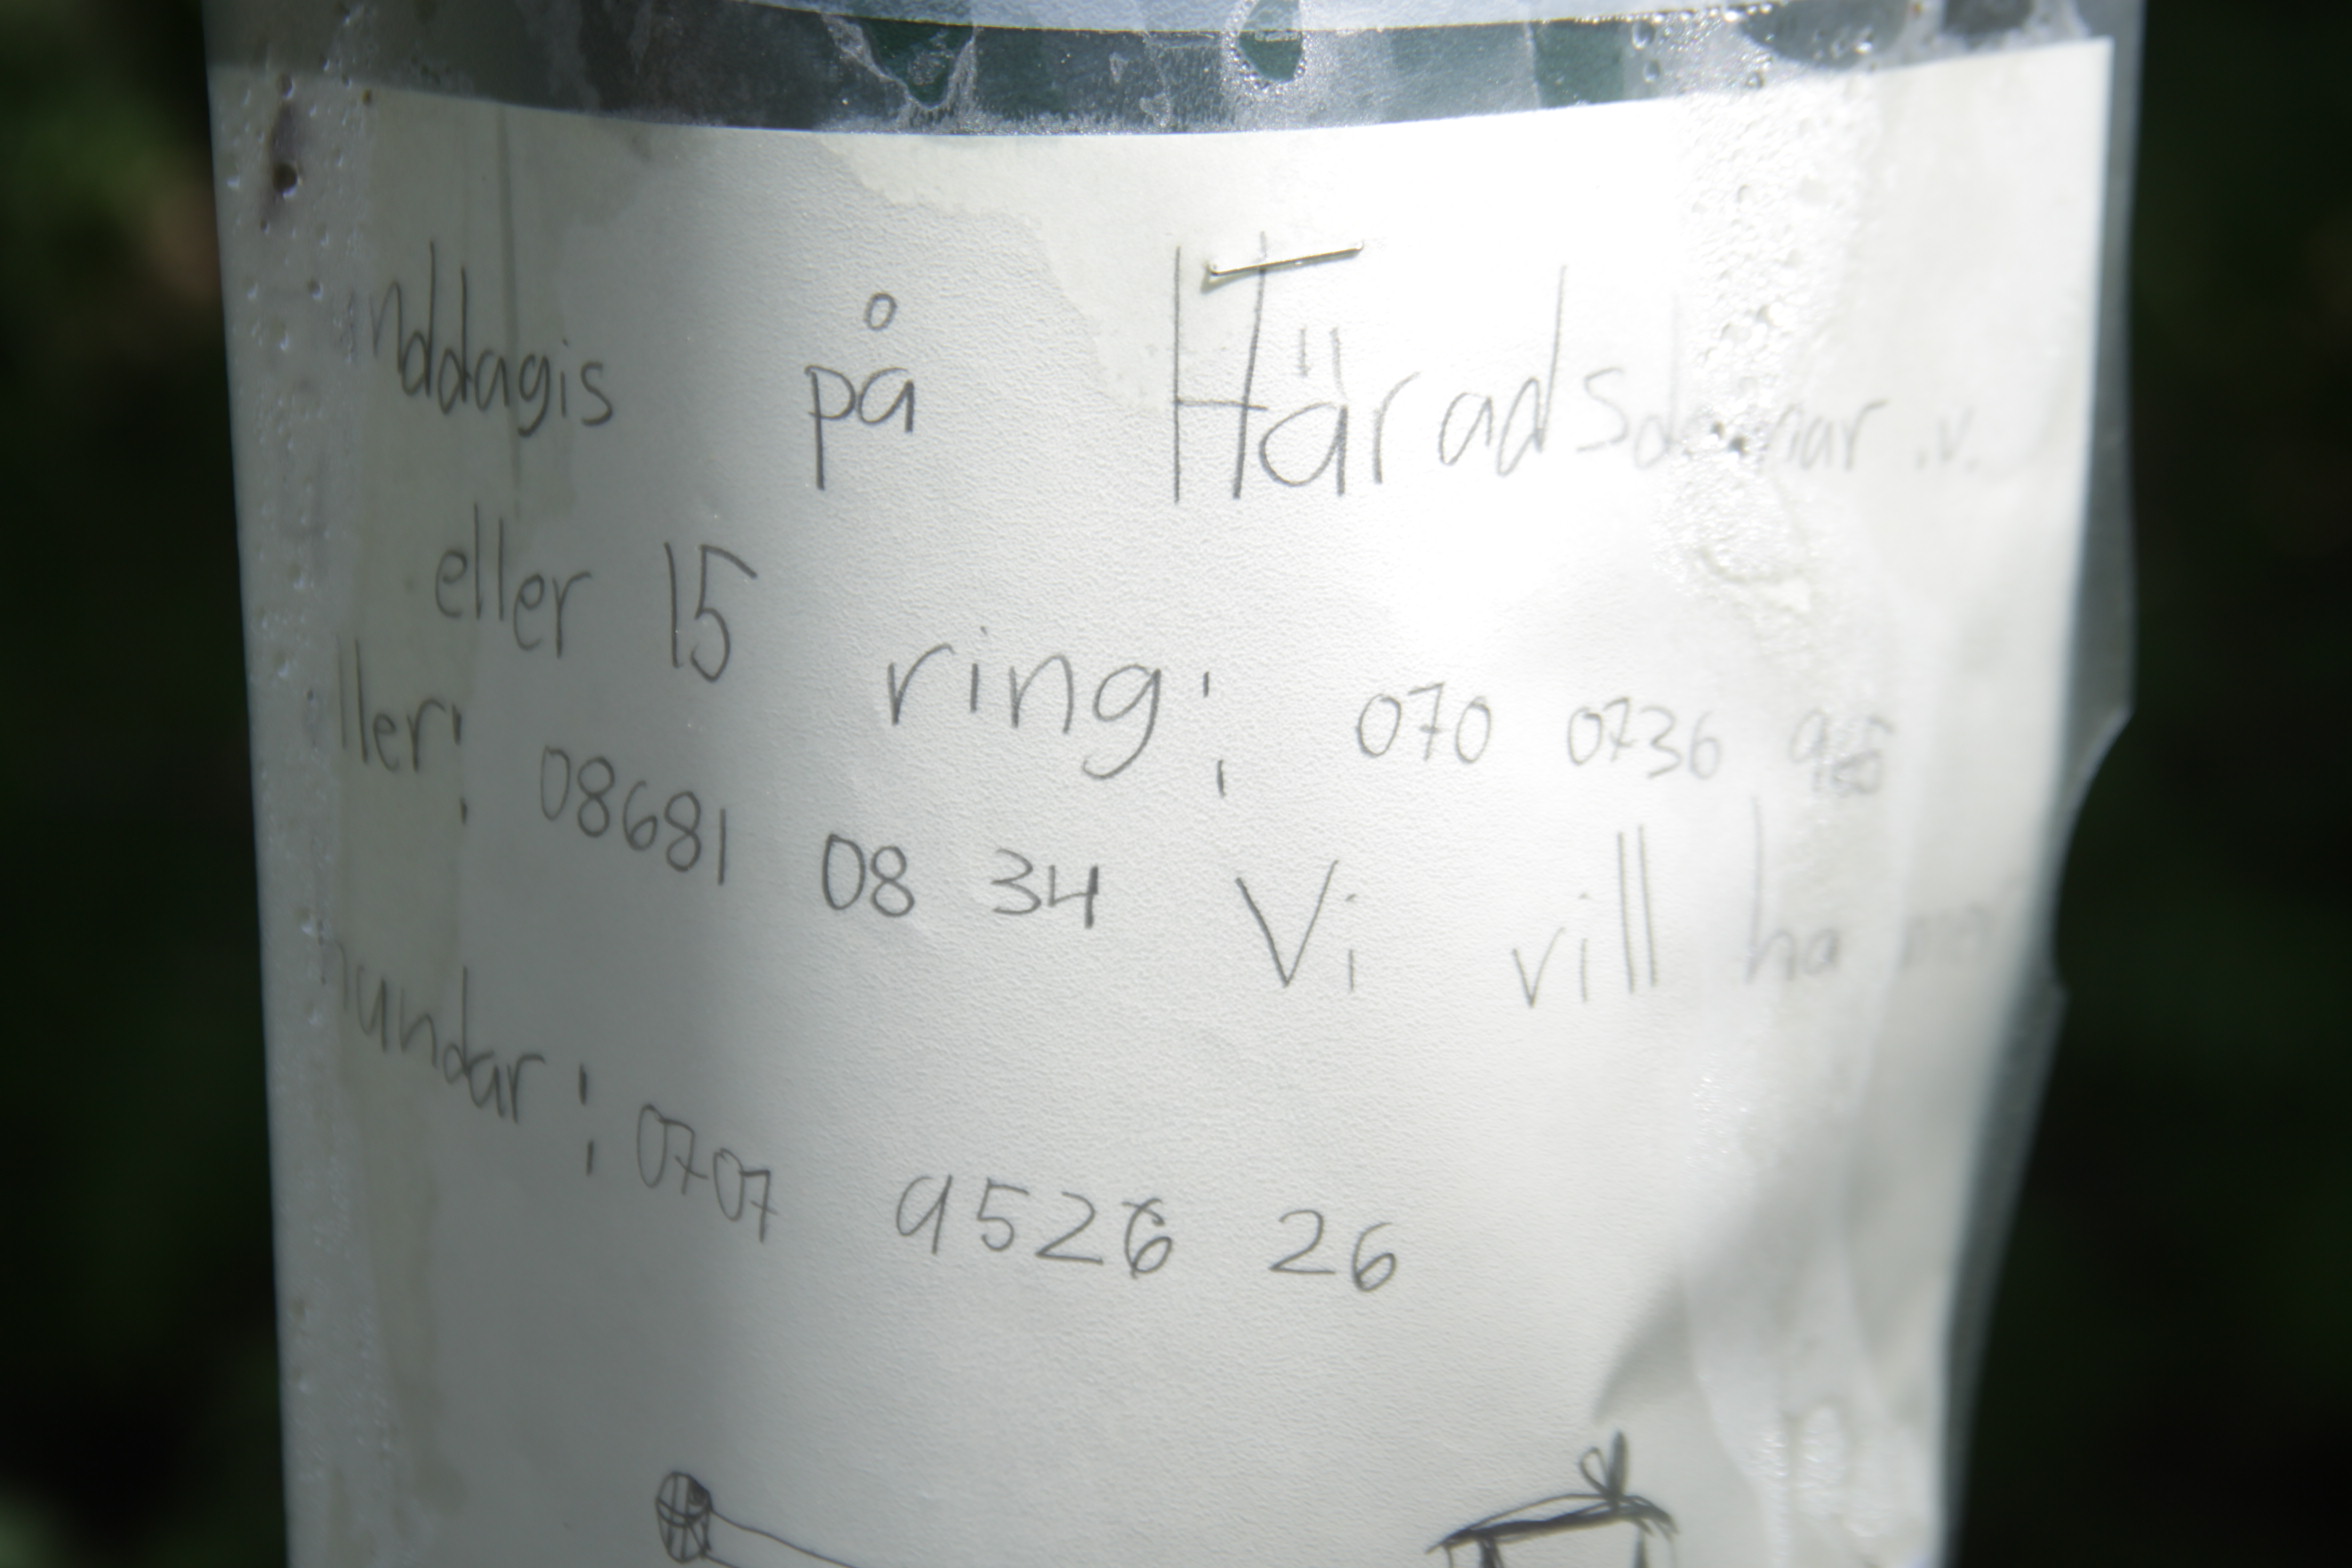 nddagis på Häradsdomar.v.
eller 15 ring: 070 0736
ller: 08681 08 34 Vi vill ha
hundar: 0707 9526 26